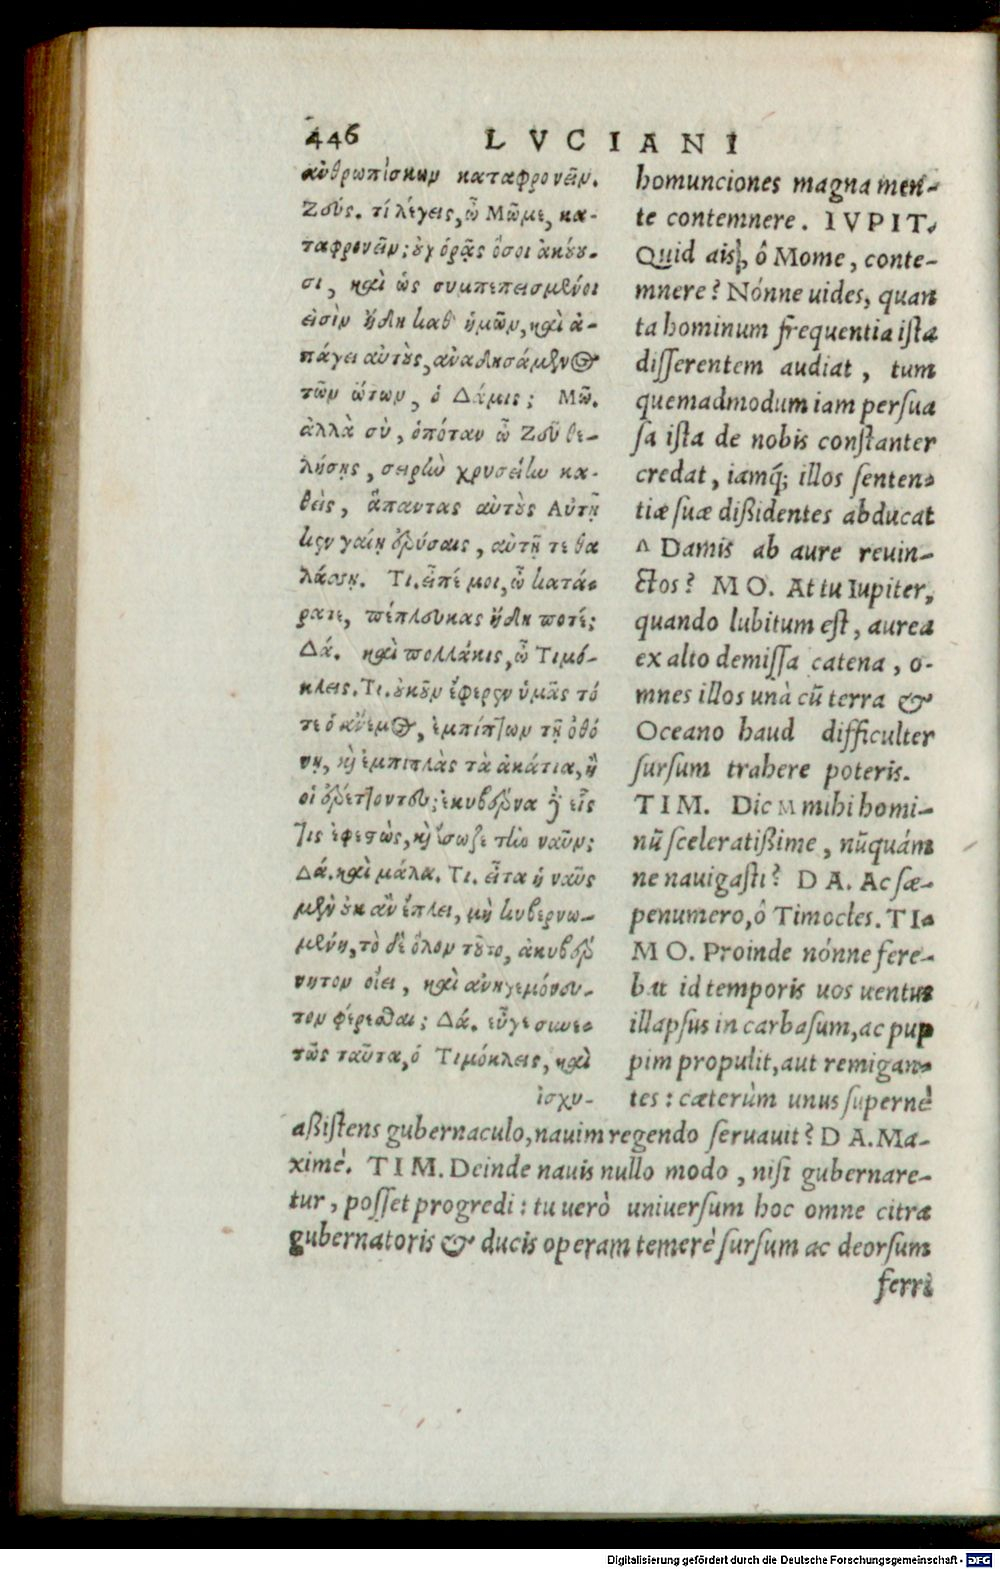 446 LVCIANI
ἀνθρωπίσκων καταφρονεῖν.
Ζεύς. τί λέγεις, ὦ Μῶμε, κα-
ταφρονεῖν; οὐχ ὁρᾷς ὅσοι ἀκούου-
σι, καὶ ὡς συμπεπεισμένοι
εἰσὶν ἤδη καθ' ἡμῶν, καὶ ἀ-
πάγει αὐτοὺς, ἀναδησάμενος
τῶν ὤτων, ὁ Δάμις; Μῶ.
ἀλλὰ σὺ, ὁπόταν ὦ Ζεῦ θε-
λήσῃς, σειρὴν χρυσείην κα-
θεὶς, ἅπαντας αὐτοὺς Αὐτῇ
κεν γαίῃ ἐρύσαις, αὐτῇ τε θα
λάσσῃ. Τι. εἰπέ μοι, ὦ κατά-
ρατε, πέπλευκας ἤδη ποτέ;
Δά. καὶ πολλάκις, ὦ Τιμό-
κλεις. Τι. οὐκοῦν ἔφερεν ὑμᾶς τό
τε ὁ ἄνεμος, ἐμπίπτων τῇ ὀθό
νῃ, καὶ ἐμπιπλὰς τὰ ἀκάτια, ἢ
οἱ ἐρέττοντες; ἐκυβέρνα δὲ εἷς
τις ἐφεστὼς, καὶ ἔσωζε τὴν ναῦν;
Δά. καὶ μάλα. Τι. εἶτα ἡ ναῦς
μὲν οὐκ ἂν ἔπλει, μὴ κυβερνω-
μένη, τὸ δὲ ὅλον τοῦτο, ἀκυβέρ
νητον οἴει, καὶ ἀνηγεμόνευ-
τον φέρεσθαι; Δά. εὖγε συνε-
τῶς ταῦτα, ὁ Τιμόκλεις, καὶ
ἰσχυ-
homunciones magna men-
te contemnere. IVPIT.
Quid ais, ô Mome, conte-
mnere? Nónne uides, quan
ta hominum frequentia ista
disserentem audiat, tum
quemadmodum iam persua
sa ista de nobis constanter
credat, iamq́; illos senten-
tiæ suæ dißidentes abducat
Damis ab aure reuin-
ctos? MO. At tu Iupiter,
quando lubitum est, aurea
ex alto demissa catena, o-
mnes illos unà cũ terra &
Oceano haud difficulter
sursum trahere poteris.
TIM. Dic mihi homi-
nũ sceleratißime, nũquám
ne nauigasti? DA. Ac sæ-
penumero, ô Timocles. TI-
MO. Proinde nónne fere-
bat id temporis uos uentus
illapsus in carbasum, ac pup
pim propulit, aut remigan-
tes: cæterùm unus supernè
aßistens gubernaculo, nauim regendo seruauit? DA. Ma-
ximè. TIM. Deinde nauis nullo modo, nisi gubernare-
tur, posset progredi: tu uerò uniuersum hoc omne citra
gubernatoris & ducis operam temerè sursum ac deorsum
ferri
Digitalisierung gefördert durch die Deutsche Forschungsgemeinschaft - DFG